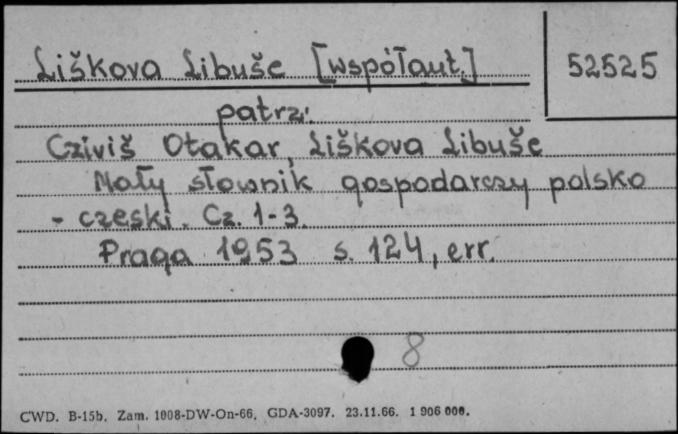 Liškova Libuše [współaut.] 52525
patrz:
Cziviš Otakar, Liškova Libuše
Mały słownik gospodarczy polsko
- czeski. Cz. 1-3.
Praga 1953 s. 124, err.
8
CWD. B-15b. Zam. 1008-DW-On-66, GDA-3097. 23.11.66. 1 906 000.